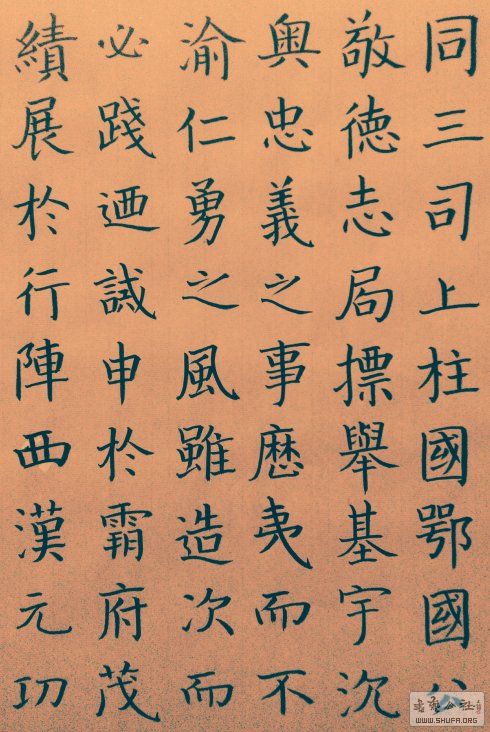 同三司上柱國鄂國公
敬德志局摽舉基宇沉
奥忠義之事歷夷而不
渝仁勇之風雖造次而
必踐迺誠申於霜府茂
績展於行陣西漢元功
WWW.SHUFA.ORG